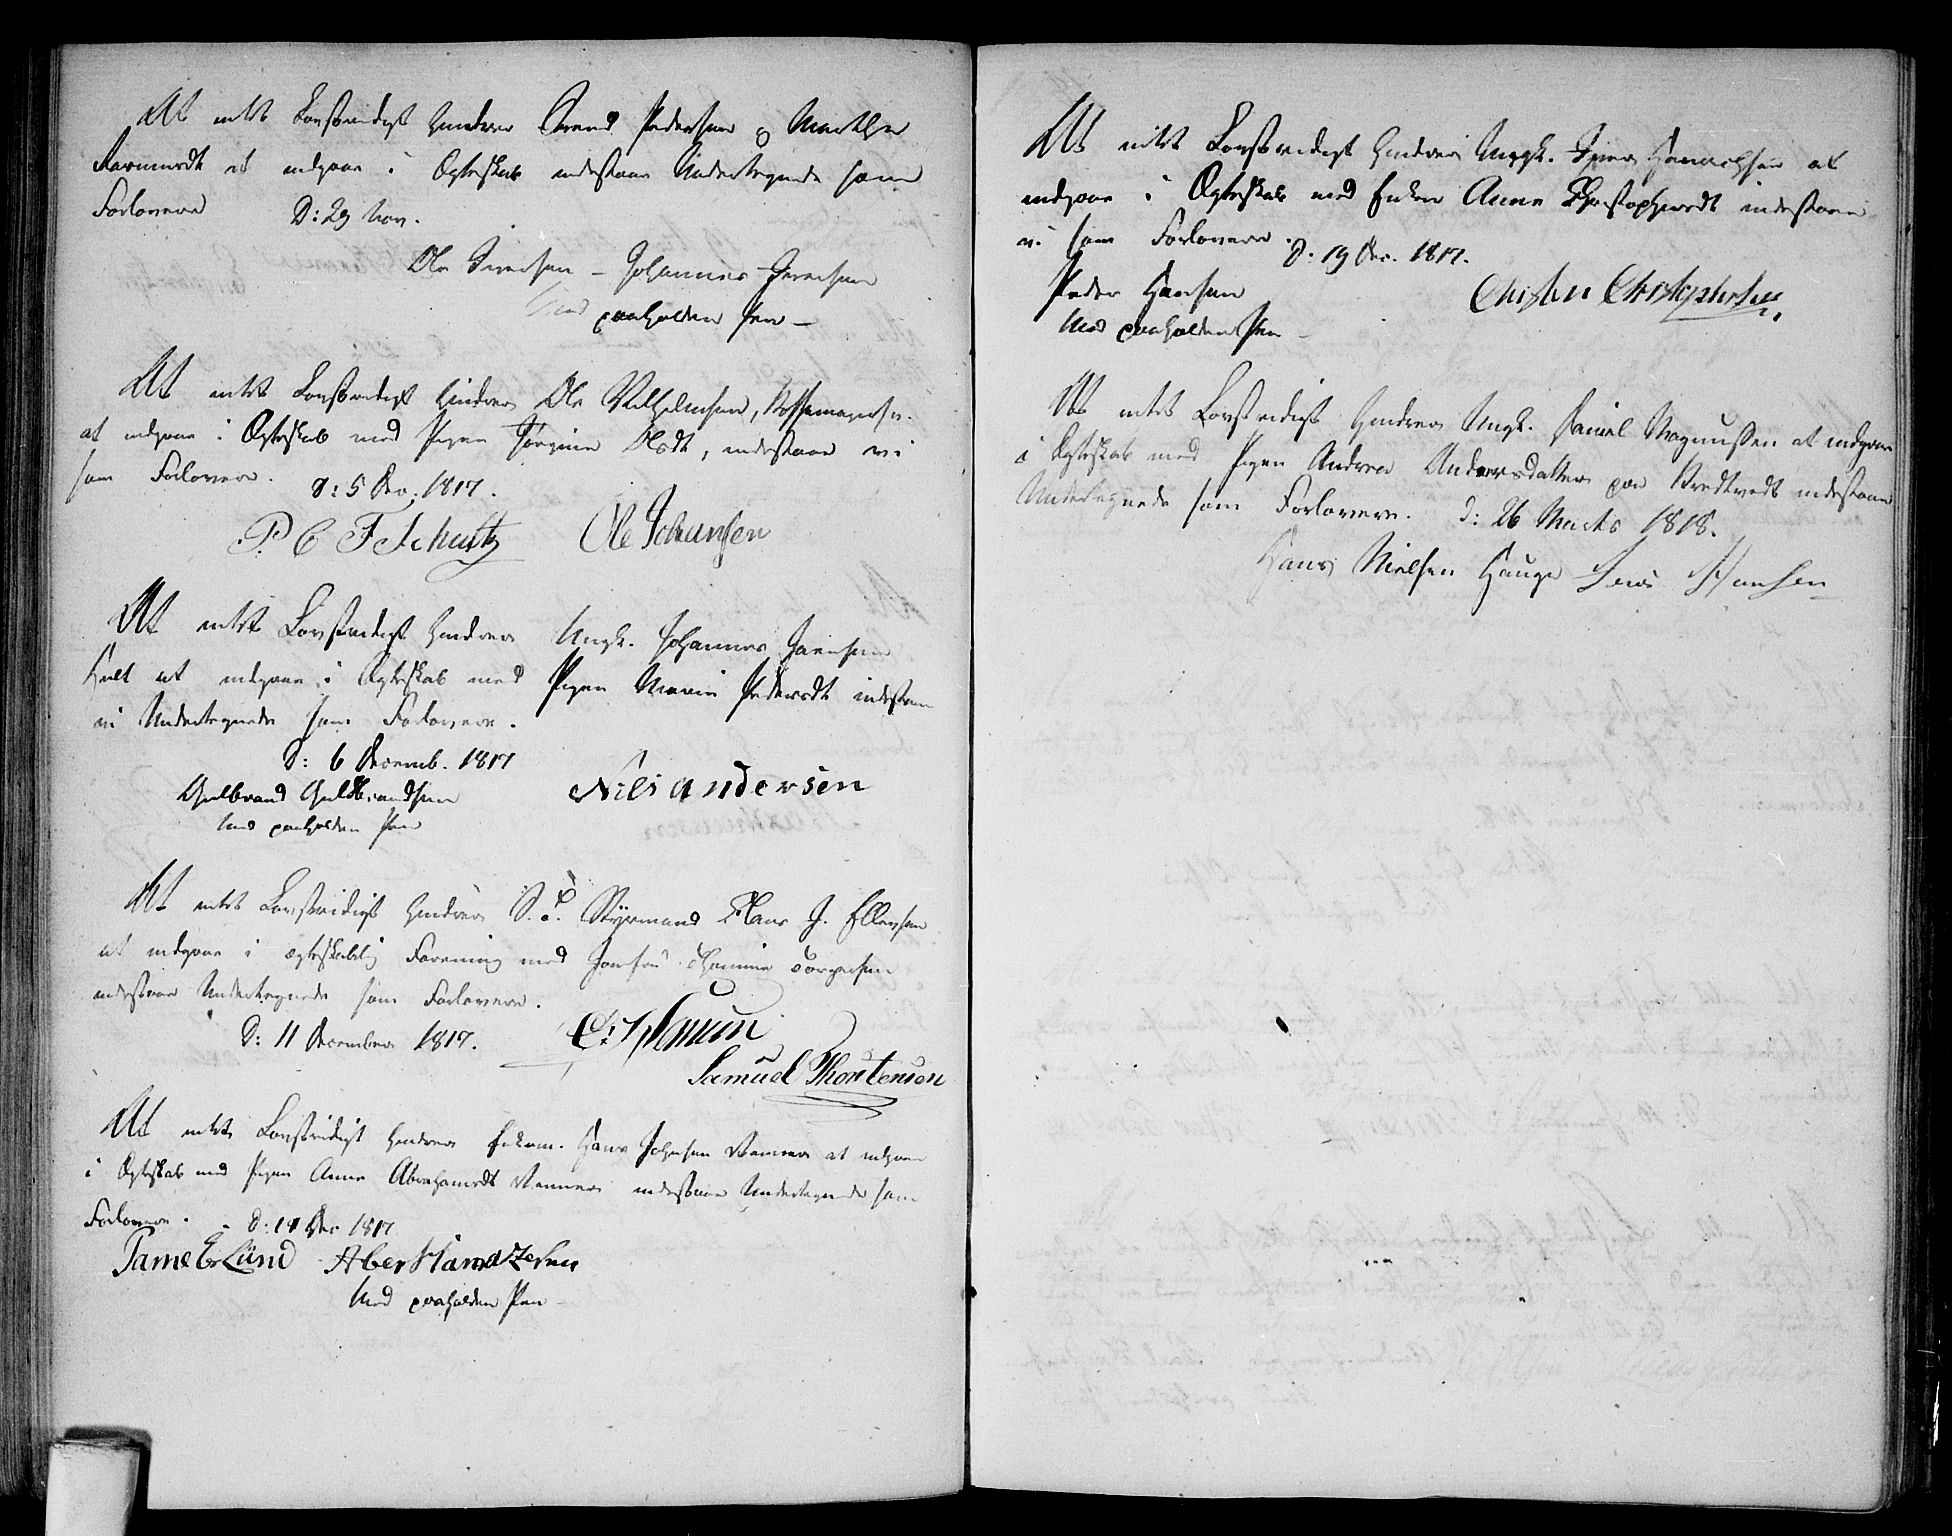 At intet Lovstridigt hindrer Svend Pedersen og Marthe
at indgaae i Ægteskab indestaae Undertegnede som
Forlovere D: 29 Nov.
Ole Iversen - Johannes Iversen
Med paaholden Pen -
At intet Lovstridigt hindrer Ole Vilhelmsen,
at indgaae i Ægteskab med Pigen Jørgine Olsdt, indestaae vi
som Forlovere. D: 5 Dec. 1817.
P. C. F Schultz Ole Johansen
At intet Lovstridigt hindrer Ungk. Johannes
at indgaae i Ægteskab med Pigen Maria Pedersdt indestaae
vi Undertegnede som Forlovere.
D: 6 Decemb. 1817
Gulbrand Guldbrandsen Nils andersen
Med paaholden Pen
At intet Lovstridigt hindrer S. T. Styrmand Claus J. Ellevsen
at indgaae i ægteskabelig Forening med Jomfru Torgersen
indestaae Undertegnede som Forlovere.
D: 11 December 1817.
Samuel Thorstensen
At intet Lovstridigt hindrer Enkem. Hans Johnsen at indgaae
i Ægteskab med Pigen Anne Abrahamsdt indestaae Undertegnede som
Forlovere. - D: 18 Dec 1817
Lund
Med paaholden Pen -
At intet Lovstridigt hindrer Ungk. Iver at
indgaae i Ægteskab med Enken Anne Christophersdt indestaae
vi som Forlovere. D. 19 Dec. 1817.
Peder Hansen Christen Christophersen
Med paaholden Pen -
At intet Lovstridigt hindrer Ungk. Daniel Magnussen at indgaae
i Ægteskab med Pigen Andrea Andersdatter paa Bredtvedt indestaae
Undertegnede som Forlovere. D: 26 Marts 1818.
Hans Nielsen Hauge Hansen